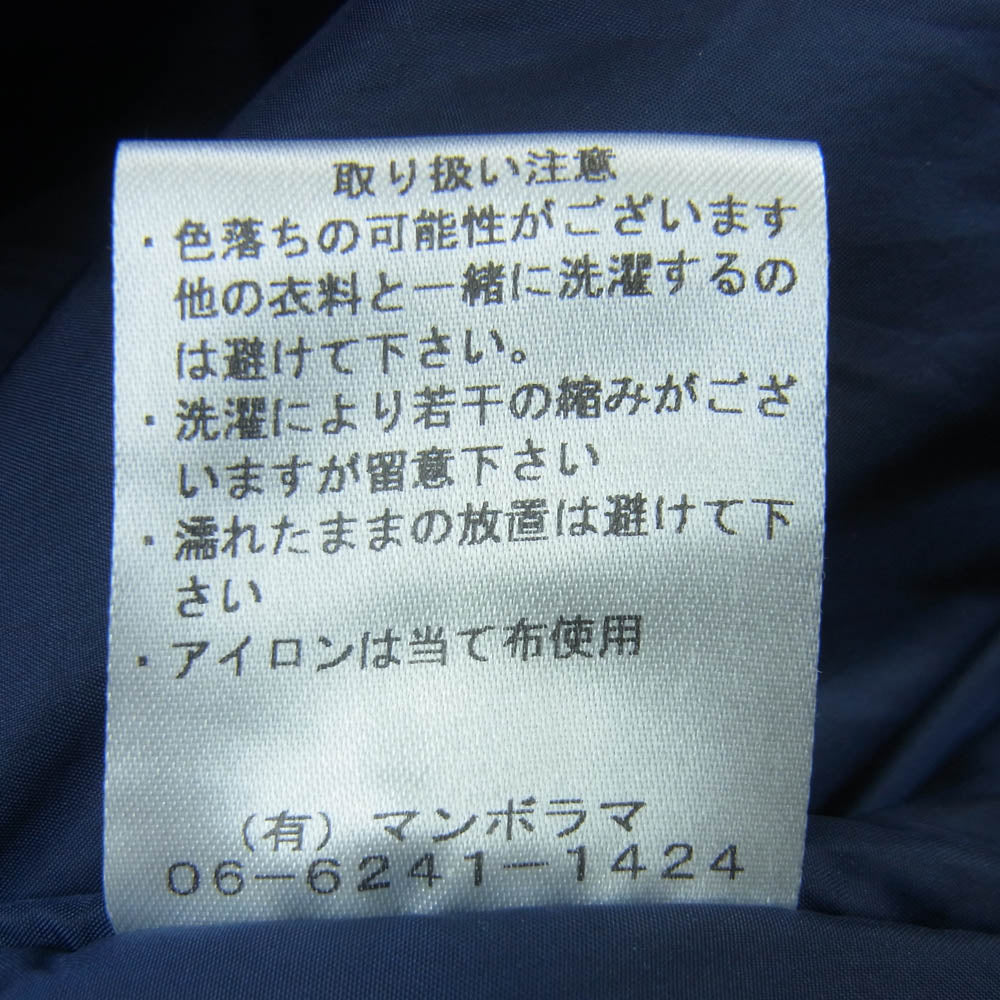 取り扱い注意
・色落ちの可能性がございます
他の衣料と一緒に洗濯するの
は避けて下さい。
・洗濯により若干の縮みがござ
いますが留意下さい
・濡れたままの放置は避けて下
さい
・アイロンは当て布使用
（有）マンボラマ
06-6241-1424